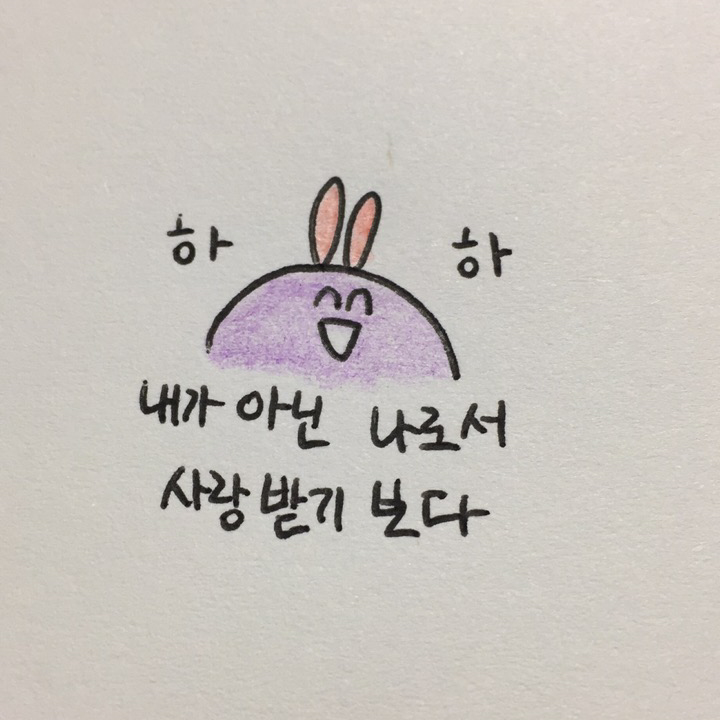 하 하
내가 아닌 나로서
사랑받기 보다